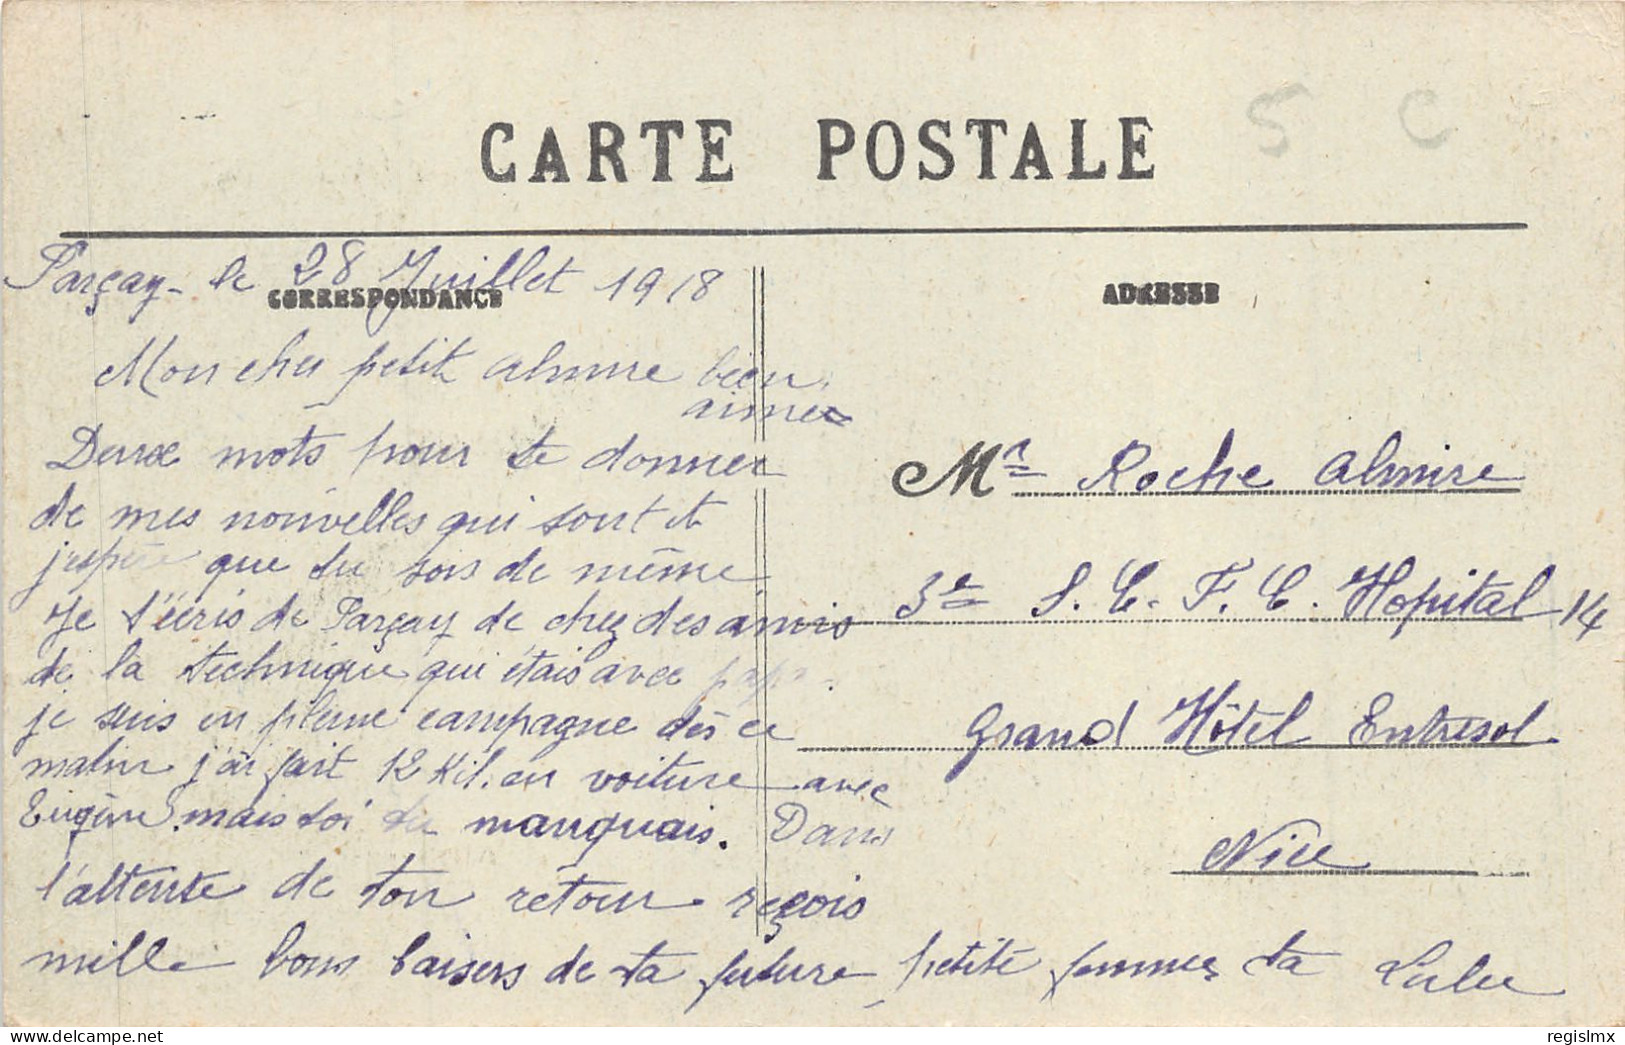 5 C
CARTE POSTALE
Parçay - le 28 Juillet 1918
CORRESPONDANCE
Mon cher petit Almire bien
aimer
Deux mots pour te donner
de mes nouvelles qui sont et
j'espère que tu sois de même
Je t'écris de Parçay de chez des amis
de la technique qui étais avec papa
je suis en pleine campagne dès ce
matin j'ai fait 12 Kil. en voiture avec
Eugène mais toi tu manquais. Dans
l'attente de ton retour reçois
mille bons baisers de ta future petite femme ta Lulu
ADRESSE
Mr Roche Almire
3e S. E. F. C. Hopital 14
Grand Hôtel Entresol
Nice
Delcampe.net
regislmx